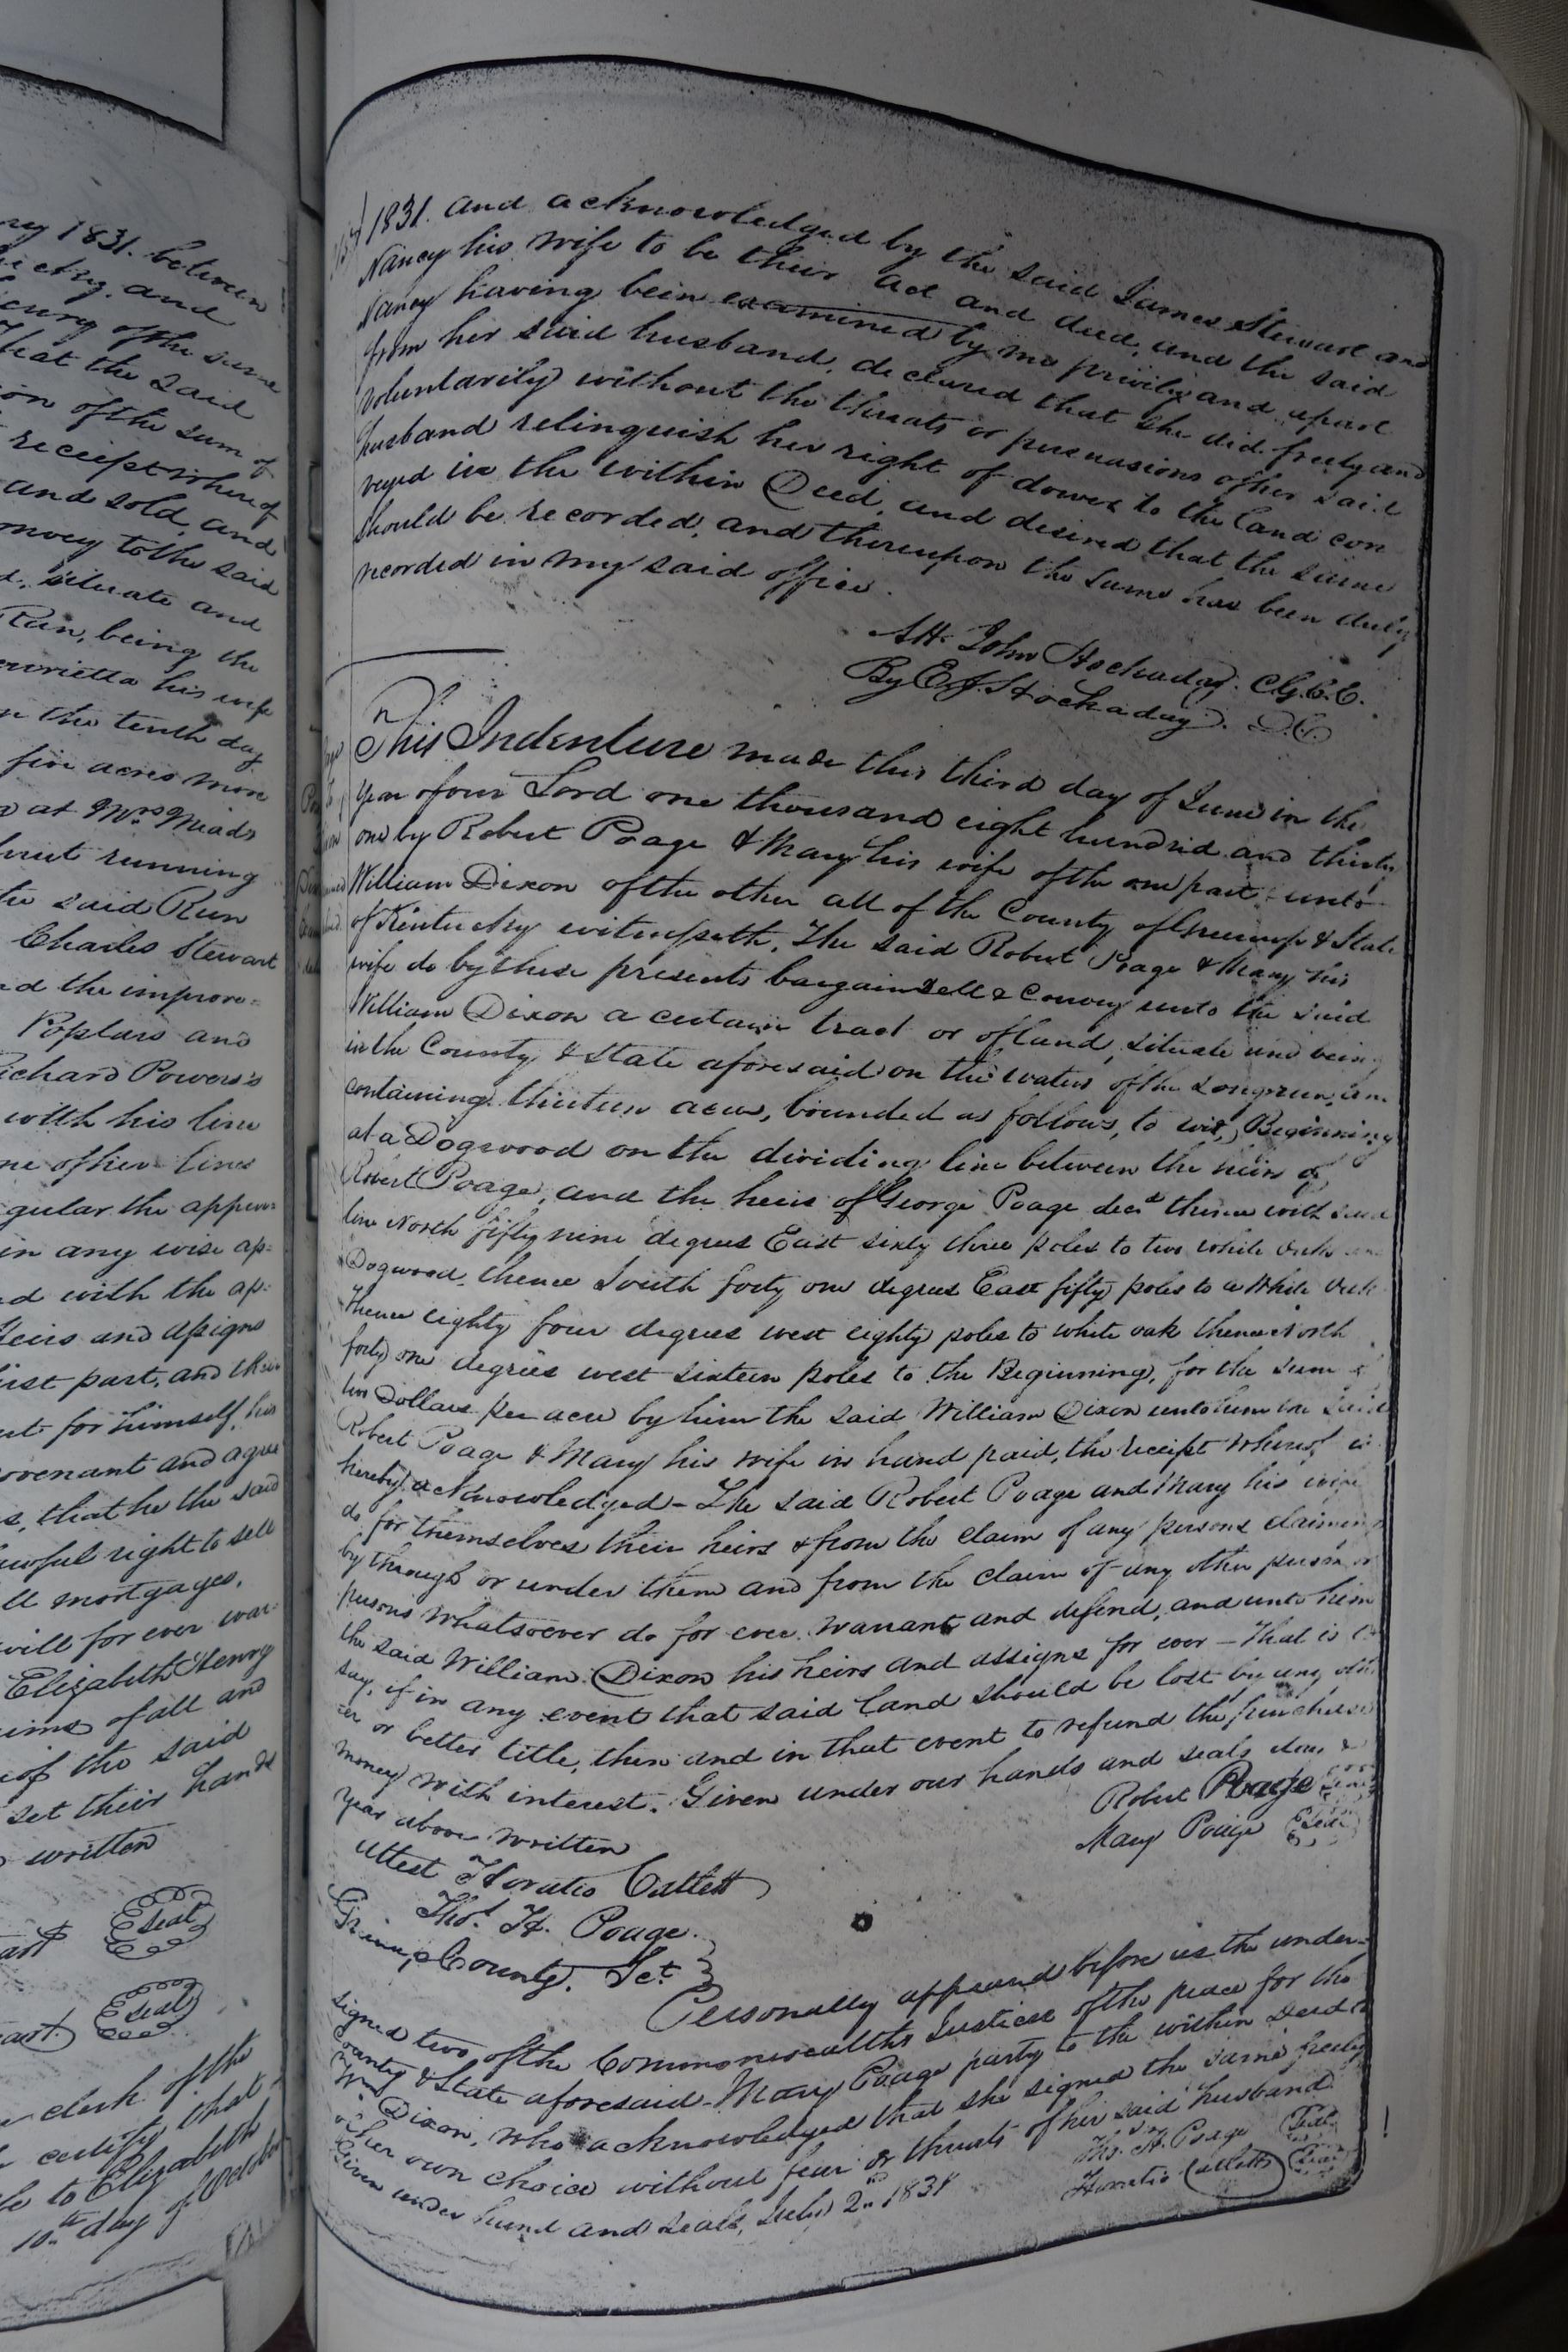 ry 1831. between
and
Henry of the same
That the said
ion of the sum of
receipt whereof
and sold, and
onvey to the said
d, situate and
Run, being the
enrietta his wife
n the tenth day
five acres more
at Mrs Meads
nut running
the said Run
Charles Stewart
nd the improve=
Poplars and
Richard Powers's
with his line
ne of her lines
gular the appur=
in any wise ap=
nd with the ap=
Heirs and assigns
irst part, and their
ent for himself, his
ovenant and agree
s, that he the said
awful right to sell
ll mortgages,
will for ever war=
Elizabeth Henry
aims of all and
of the said
set their hands
written
art Seal
art Seal
clerk of the
certify that
to Elizabeth
10th day of October
1831. and acknowledged by the said James Stewart and
Nancy his wife to be their act and deed, and the said
Nancy having been examined by me privily and apart
from her said husband, declared that she did freely and
voluntarily without the threats or persuasions of her said
husband relinquish her right of dower to the land con
veyed in the within Deed, and desired that the same
should be recorded, and thereupon the same has been duly
recorded in my said office.
Att. John Hockaday. C.G.C.C.
By E. J. Hockaday. D.C
This Indenture made this third day of June in the
year of our Lord one thousand eight hundred and thirty
one by Robert Poage & Mary his wife of the one part unto
William Dixon of the other all of the County of Greenup & State
of Kentucky witnesseth, The said Robert Poage & Mary his
wife do by these presents bargain sell & convey unto the said
William Dixon a certain tract or of land, situate and being
in the County & State aforesaid on the waters of the Longrun, and
containing thirteen acres, bounded as follows, to wit, Beginning
at a Dogwood on the dividing line between the heirs of
Robert Poage, and the heirs of George Poage decd thence with said
line North fifty nine degrees East sixty three poles to two white oaks and
Dogwood, thence South forty one degrees East fifty poles to a White Oak
Thence eighty four degrees west eighty poles to white oak thence North
forty one degrees west sixteen poles to the Beginning, for the sum of
two Dollars per acre by him the said William Dixon unto him the said
Robert Poage & Mary his wife in hand paid, the receipt whereof is
hereby acknowledged - The said Robert Poage and Mary his wife
do for themselves their heirs & from the claim of any persons claiming
by through or under them and from the claim of any other person or
persons whatsoever do for ever warrant and defend, and unto him
the said William Dixon his heirs and assigns for ever - That is to
say, if in any event that said land should be lost by any oth
er or better title, then and in that event to refund the purchase
money with interest. Given under our hands and seals day &
year above written
Robert Poage Seal
Mary Poage Seal
Attest Horatio Catlett
Thos. H. Poage
Greenup County. Sct.
Personally appeared before us the under-
signed two of the Commonwealths Justices of the peace for the
County & State aforesaid - Mary Poage party to the within Deed to
Wm Dixon, who acknowledged that she signed the same freely
of her own choice without fear or threats of her said husband
Given under hand and seals, July 2nd 1831
Thos. H. Poage Seal
Horatio Catlett Seal